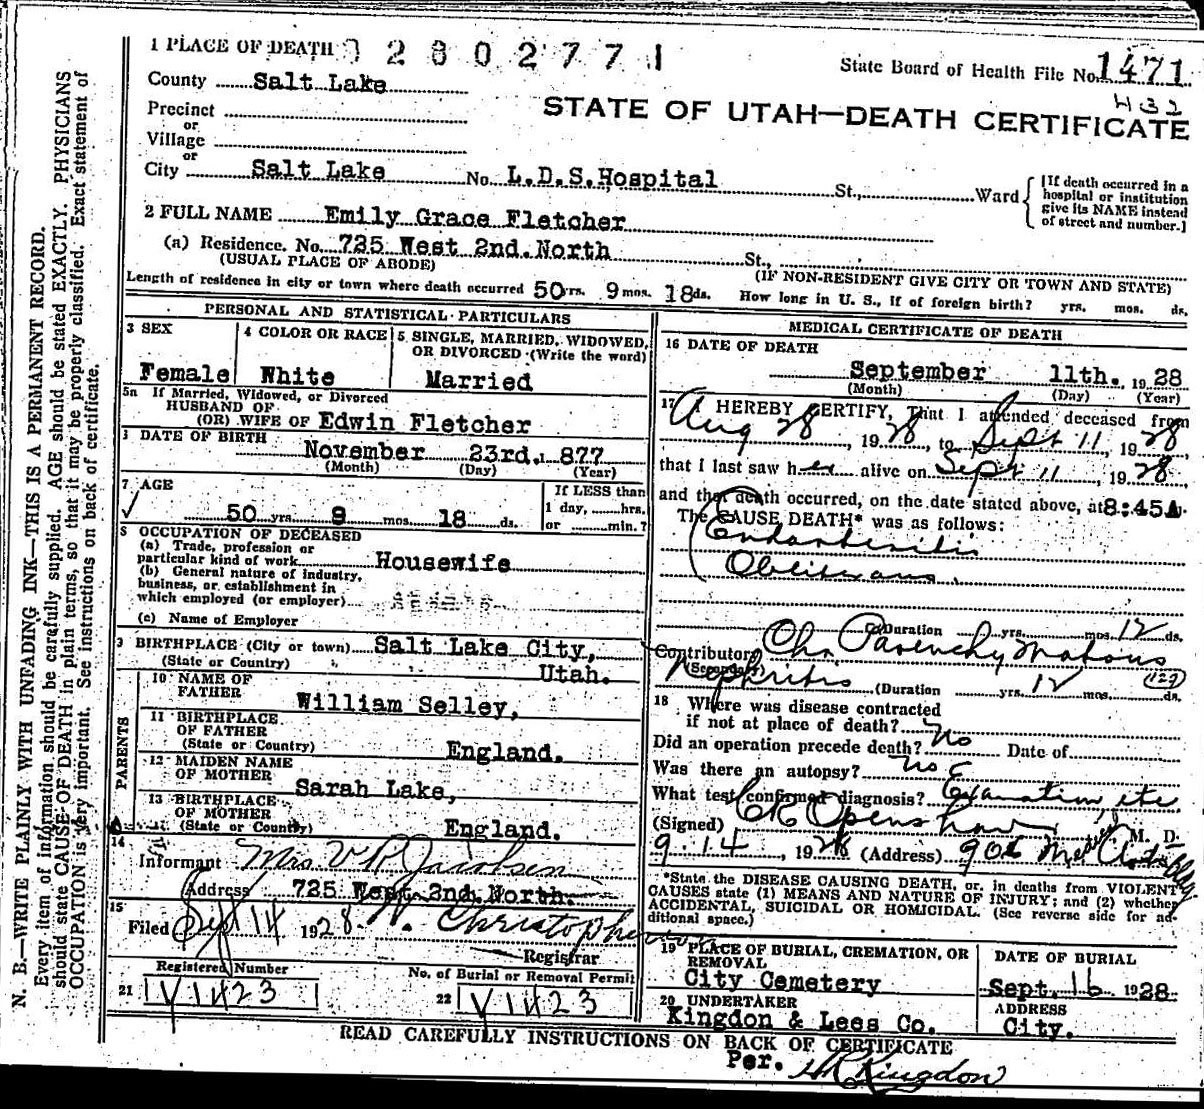 N. B.—WRITE PLAINLY WITH UNFADING INK—THIS IS A PERMANENT RECORD.
Every item of information should be carefully supplied. AGE should be stated EXACTLY. PHYSICIANS
should state CAUSE OF DEATH in plain terms, so that it may be properly classified. Exact statement of
OCCUPATION is very important. See instructions on back of certificate.
1 PLACE OF DEATH 0280277 1
State Board of Health File No. 1471
432
County Salt Lake
STATE OF UTAH—DEATH CERTIFICATE
Precinct
or
Village
or
City Salt Lake No. L.D.S.Hospital St., Ward
[If death occurred in a
hospital or institution
give its NAME instead
of street and number.]
2 FULL NAME Emily Grace Fletcher
(a) Residence. No. 725 West 2nd.North St.,
(USUAL PLACE OF ABODE) (IF NON-RESIDENT GIVE CITY OR TOWN AND STATE)
Length of residence in city or town where death occurred 50 yrs. 9 mos. 18 ds. How long in U. S., if of foreign birth? yrs. mos. ds.
PERSONAL AND STATISTICAL PARTICULARS
3 SEX
Female
4 COLOR OR RACE
White
5 SINGLE, MARRIED, WIDOWED,
OR DIVORCED (Write the word)
Married
5a If Married, Widowed, or Divorced
HUSBAND OF
(OR) WIFE OF Edwin Fletcher
DATE OF BIRTH
November 23rd. 1877
(Month) (Day) (Year)
7 AGE
50 yrs. 9 mos. 18 ds.
If LESS than
1 day, hrs.
or min.?
8 OCCUPATION OF DECEASED
(a) Trade, profession or
particular kind of work Housewife
(b) General nature of industry,
business, or establishment in
which employed (or employer)
(c) Name of Employer
9 BIRTHPLACE (City or town) Salt Lake City,
(State or Country) Utah.
PARENTS
10 NAME OF
FATHER
William Selley,
11 BIRTHPLACE
OF FATHER
(State or Country) England.
12 MAIDEN NAME
OF MOTHER
Sarah Lake,
13 BIRTHPLACE
OF MOTHER
(State or Country) England.
14
Informant Mrs. V R Jacobsen
Address 725 West 2nd.North.
15
Filed Sept 14 1928 W. Christopherson
Registrar
Registered Number
21 V1423
No. of Burial or Removal Permit
22 V1423
MEDICAL CERTIFICATE OF DEATH
16 DATE OF DEATH
September 11th. 1928
(Month) (Day) (Year)
17 I HEREBY CERTIFY, That I attended deceased from
Aug 28, 1928, to Sept 11, 1928
that I last saw her alive on Sept 11, 1928
and that death occurred, on the date stated above, at 8:45A.
The CAUSE DEATH* was as follows:
Endarteritis
Obliterans.
(Duration yrs. mos. 12 ds.
Contributory Chr. Parenchymatous
(Secondary) Nephritis (Duration yrs. 12 mos. ds.
129
18 Where was disease contracted
if not at place of death?
Did an operation precede death? No Date of
Was there an autopsy? No
What test confirmed diagnosis? Examination, etc
(Signed) Openshaw, M. D.
9-14, 1928 (Address) 906
*State the DISEASE CAUSING DEATH, or, in deaths from VIOLENT
CAUSES state (1) MEANS AND NATURE OF INJURY; and (2) whether
ACCIDENTAL, SUICIDAL OR HOMICIDAL. (See reverse side for ad-
ditional space.)
19 PLACE OF BURIAL, CREMATION, OR
REMOVAL
City Cemetery
DATE OF BURIAL
Sept. 16 1928
20 UNDERTAKER
Kingdon & Lees Co.
ADDRESS
City.
READ CAREFULLY INSTRUCTIONS ON BACK OF CERTIFICATE
Per. Kingdon